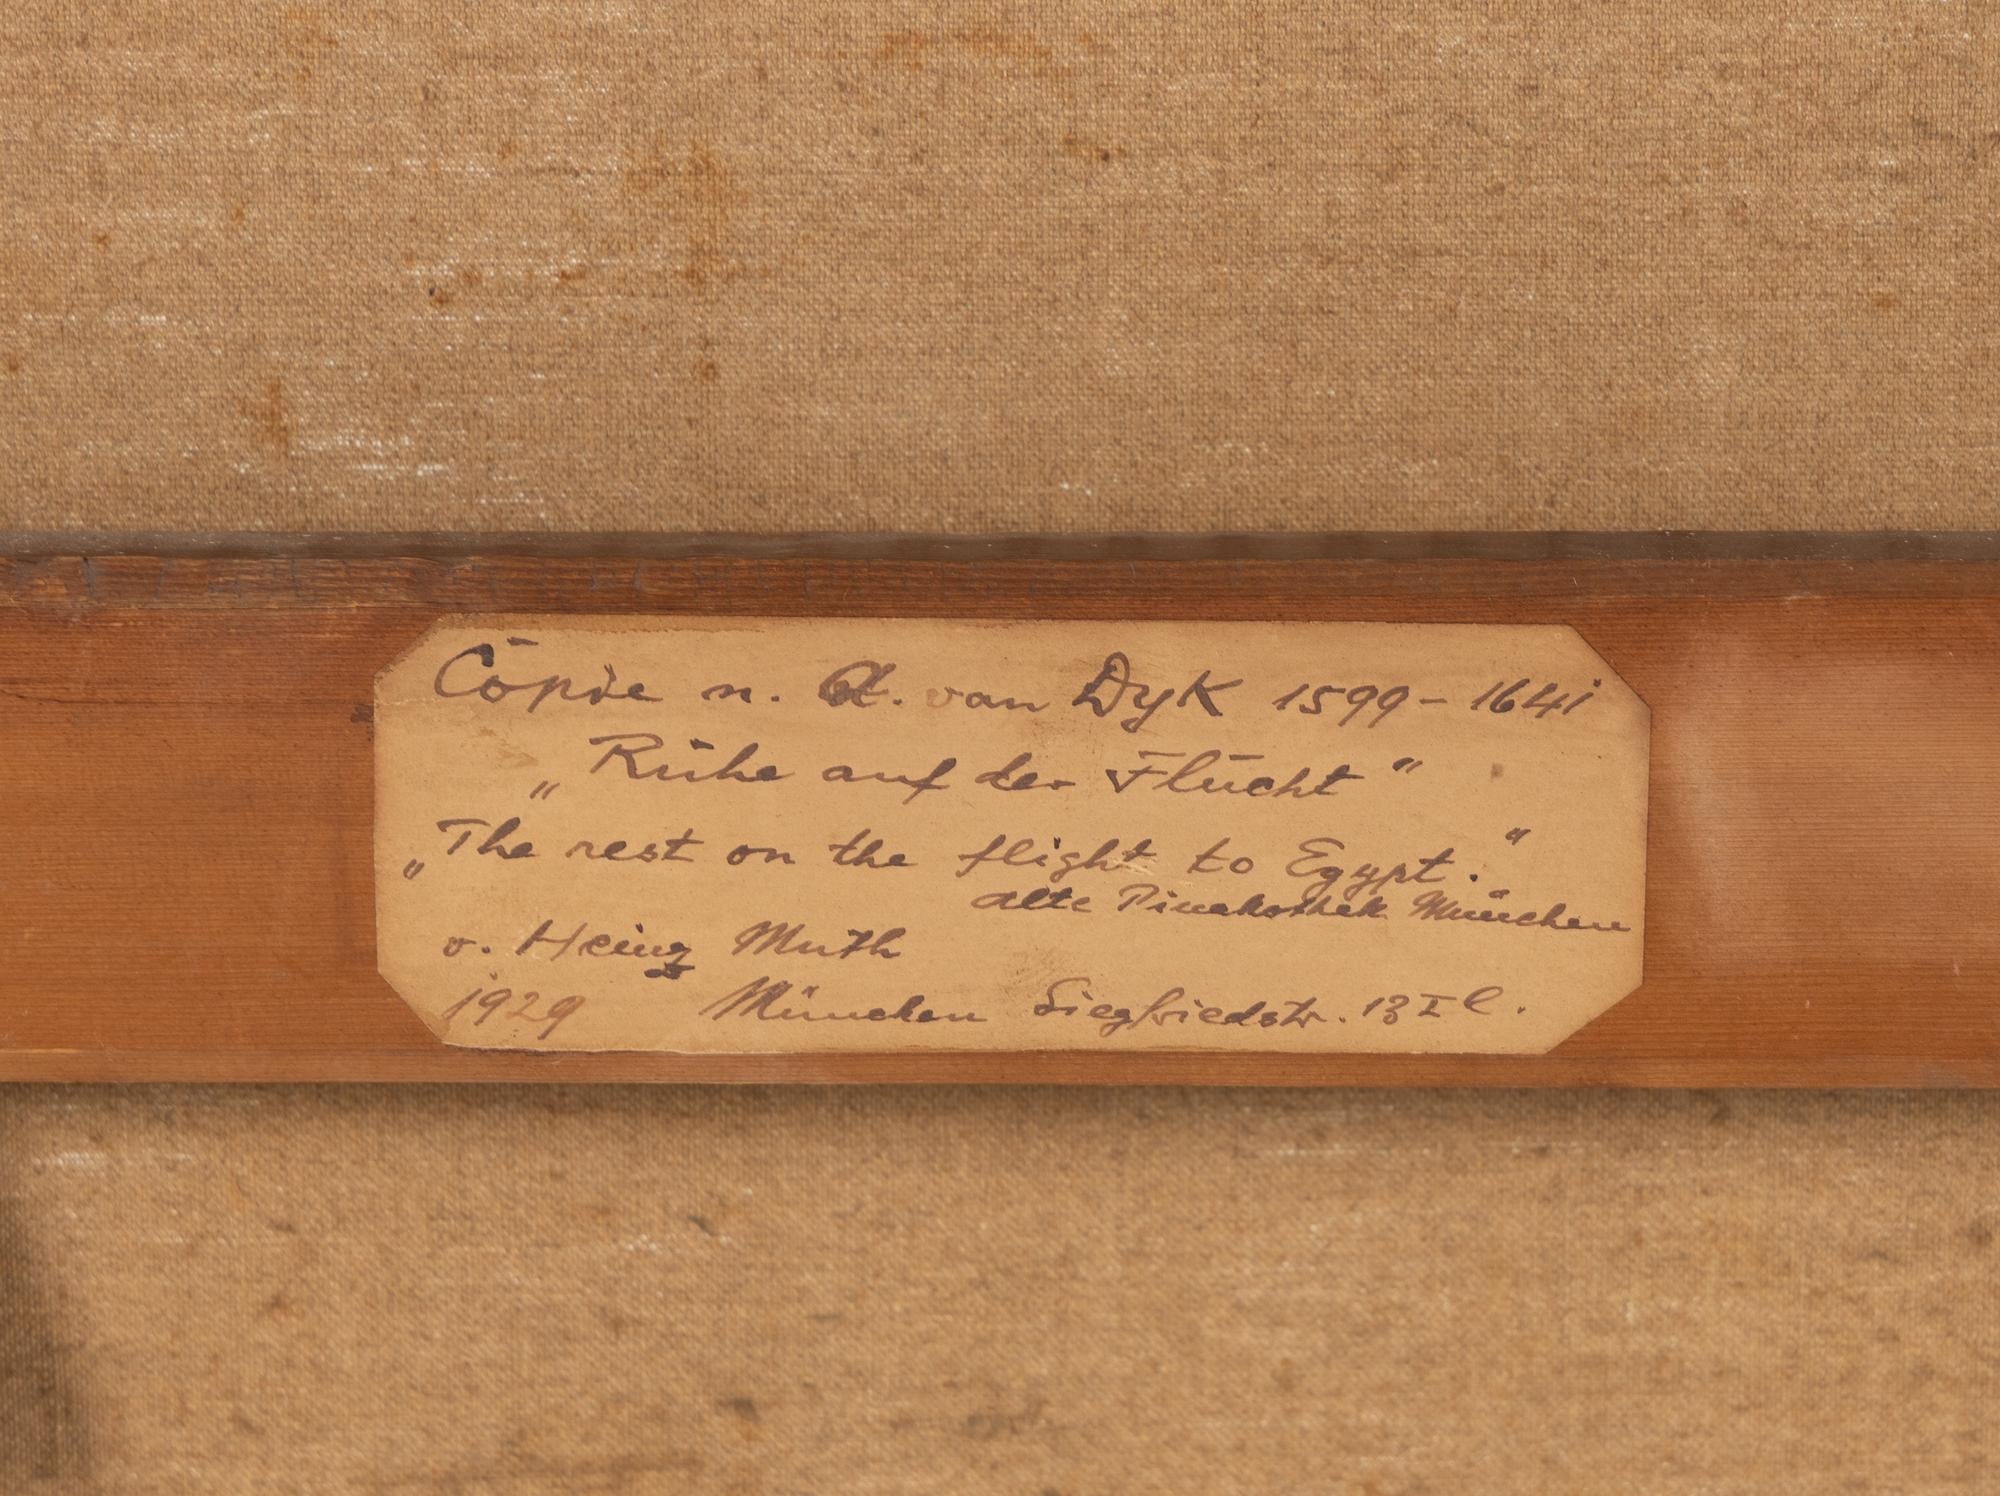 Copie n. A. van Dyk 1599 - 1641
„Ruhe auf der Flucht"
„The rest on the flight to Egypt."
Alte Pinakothek München
v. Heinz Muth
1929 München Siegfriedstr. 13 I l.